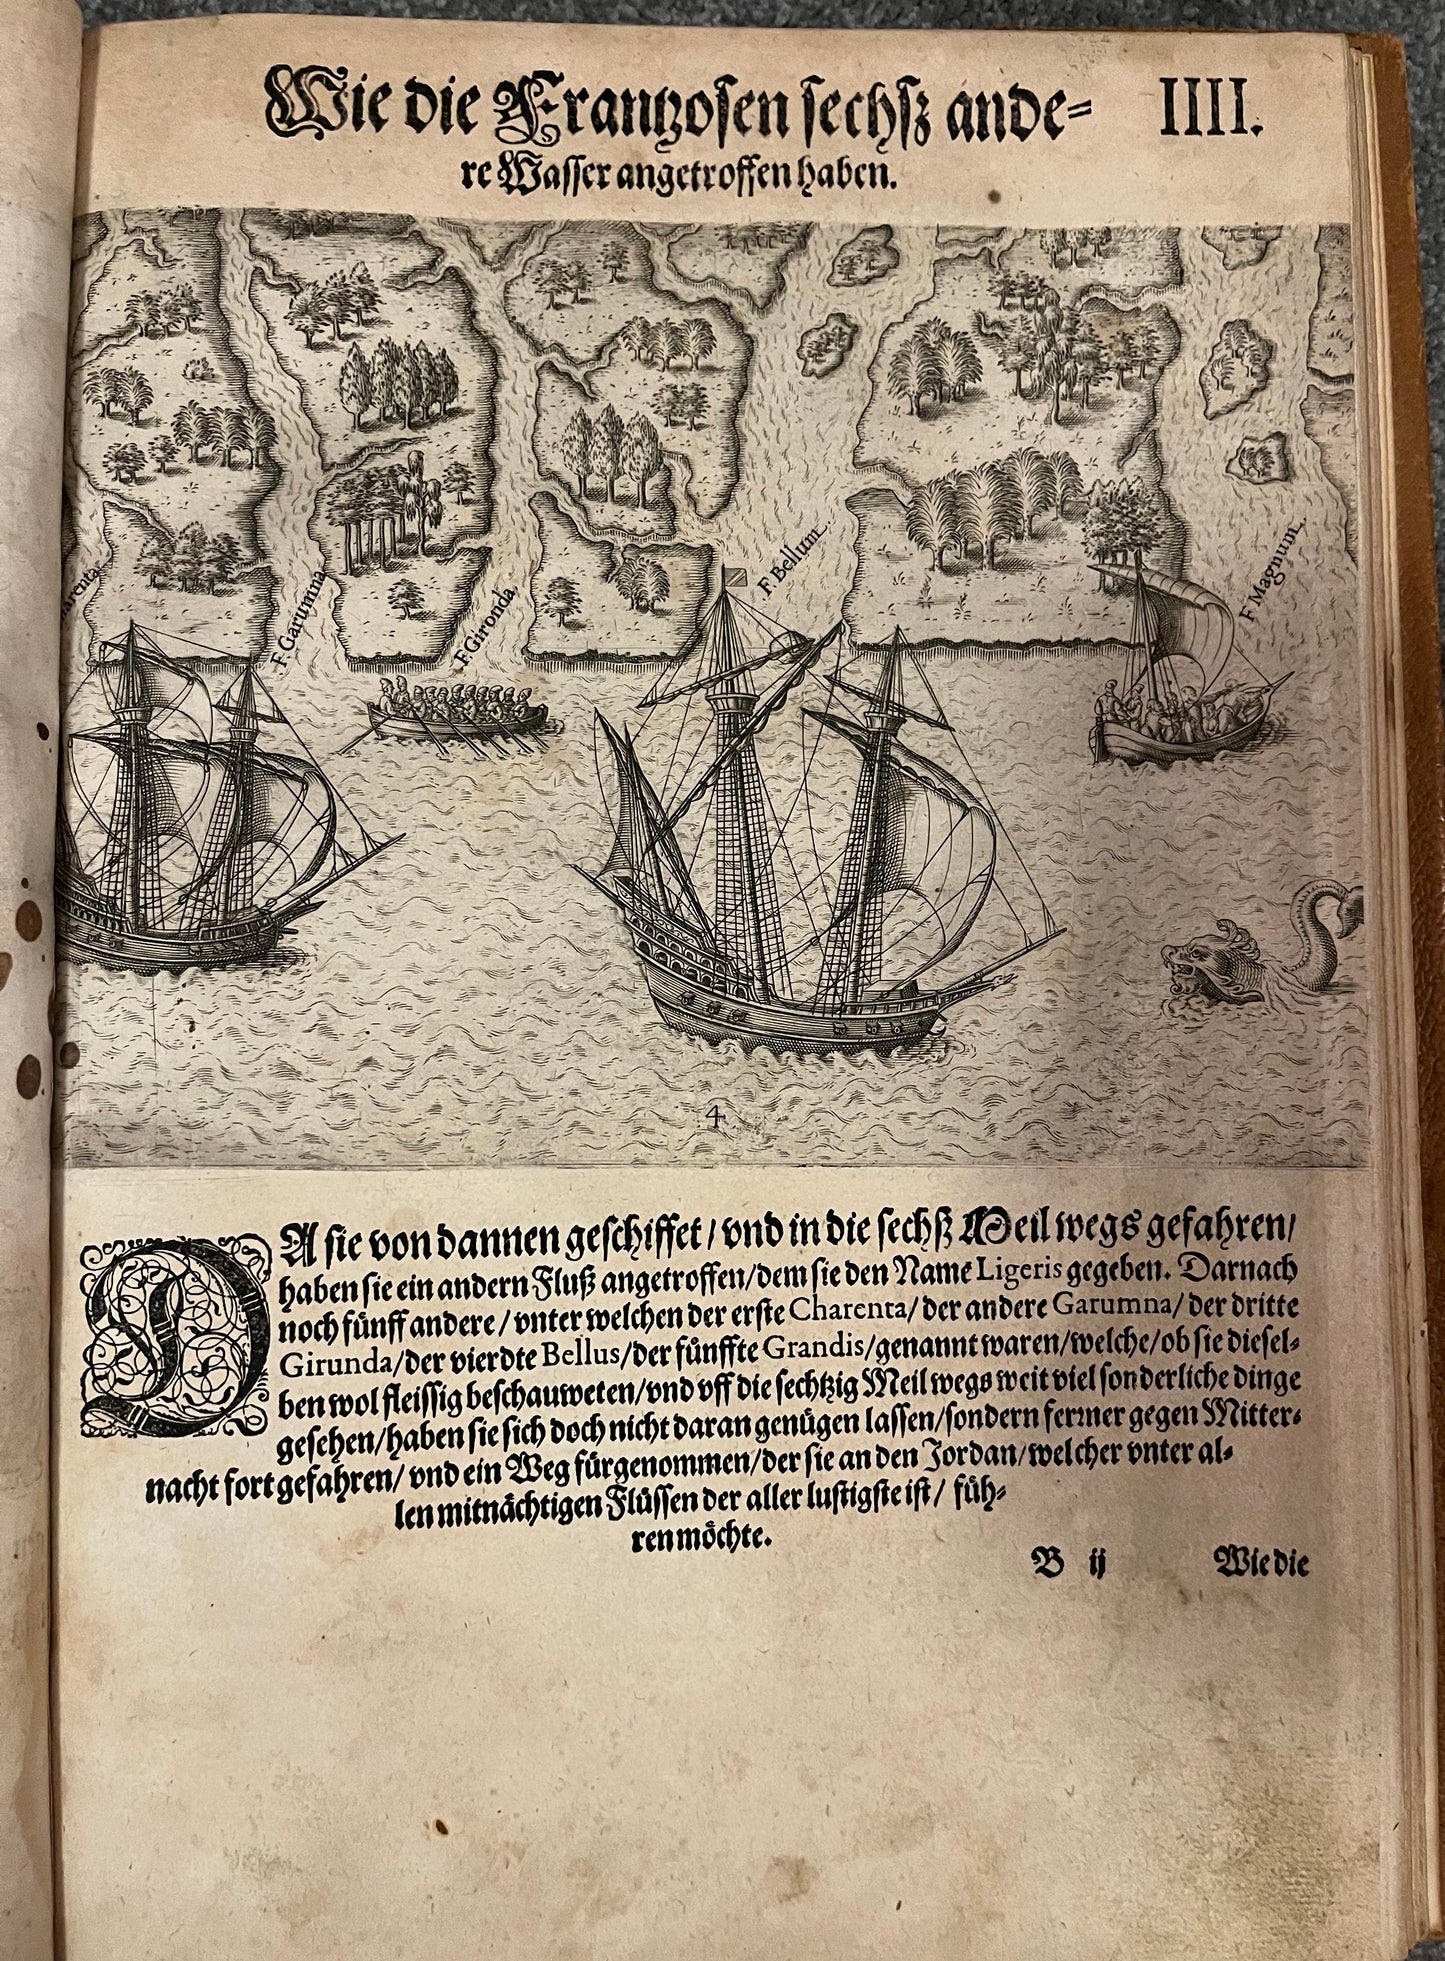 Wie die Frantzosen sechsz ande- IIII.
re Wasser angetroffen haben.
F. Garumna
F. Gironda
F. Bellum
F. Magnum
4
DA sie von dannen geschiffet / vnd in die sechß Meil wegs gefahren /
haben sie ein andern Fluß angetroffen / dem sie den Name Ligeris gegeben. Darnach
noch fünff andere / vnter welchen der erste Charenta / der andere Garumna / der dritte
Girunda / der vierdte Bellus / der fünffte Grandis / genannt waren / welche / ob sie diesel-
ben wol fleissig beschauweten / vnd vff die sechtzig Meil wegs weit viel sonderliche dinge
gesehen / haben sie sich doch nicht daran genügen lassen / sondern ferrner gegen Mitter-
nacht fort gefahren / vnd ein Weg fürgenommen / der sie an den Jordan / welcher vnter al-
len mitnächtigen Flüssen der aller lustigste ist / füh-
ren möchte.
B ij Wie die